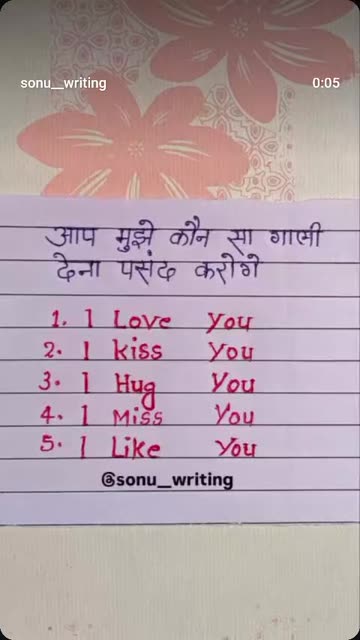 sonu__writing 0:05
आप मुझे कौन सा गाली
देना पसंद करोगे
1. I Love You
2. I kiss You
3. I Hug You
4. I Miss You
5. I Like You
@sonu__writing